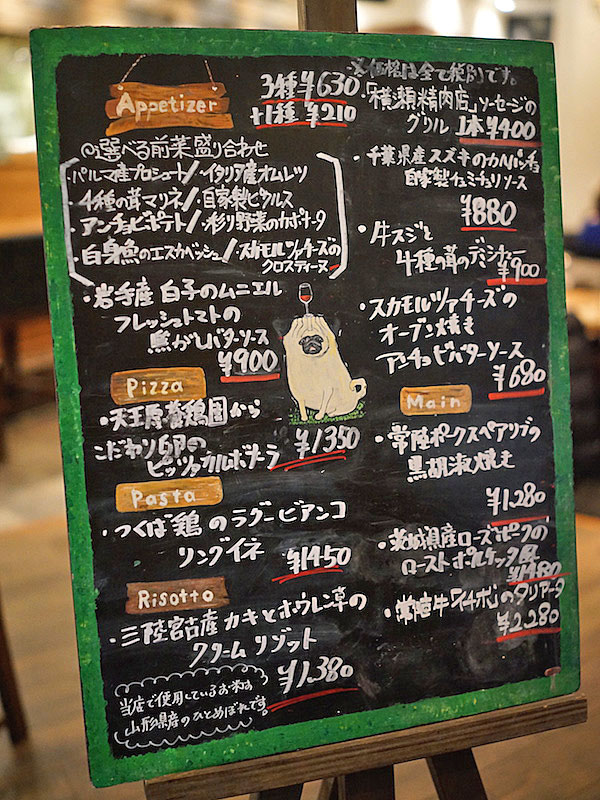 ※価格は全て税別です。
Appetizer
3種¥630
+1種 ¥210
◎選べる前菜盛り合わせ
・パルマ産プロシュート/・イタリア産オムレツ
・4種の茸マリネ/・自家製ピクルス
・アンチョビポテト/・彩り野菜のカポナータ
・白身魚のエスカベッシュ/・スカモルツァチーズの
クロスティーヌ
・岩手産 白子のムニエル
フレッシュトマトの
焦がしバターソース
¥900
Pizza
・天王原養鶏園から
こだわり卵の
ピッツァカルボナーラ
¥1350
Pasta
・つくば鶏のラグービアンコ
リングイネ
¥1450
Risotto
・三陸宮古産カキとホウレン草の
クリームリゾット
¥1,380
当店で使用しているお米は
山形県産のひとめぼれです。
・「横瀬精肉店」ソーセージの
グリル 1本¥400
・千葉県産スズキのカルパッチョ
自家製チュミチュリソース
¥880
・牛スジと
4種の茸の
¥900
・スカモルツァチーズの
オーブン焼き
アンチョビバターソース
¥680
Main
・常陸ポークスペアリブの
黒胡椒焼き
¥1,280
・茨城県産ローズポークの
ロースト ポルケッタ風
¥1480
・常陸牛「イチボ」のタリアータ
¥2,280